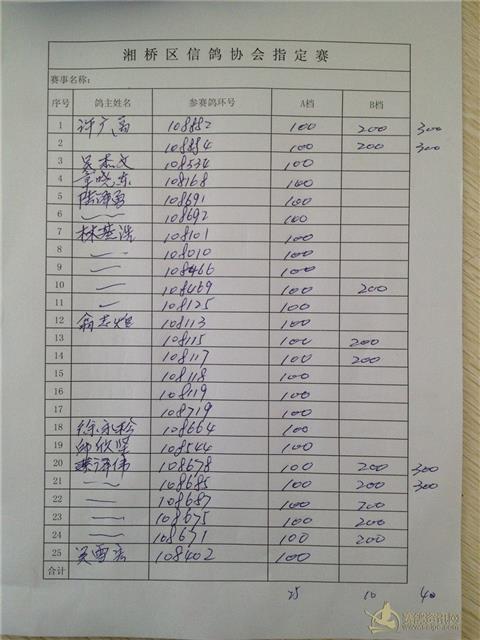 湘桥区信鸽协会指定赛
赛事名称:
序号 鸽主姓名 参赛鸽环号 A档 B档
1 许广禹 108882 100 200 300
2 108884 100 200 300
3 吴杰文 108534 100
4 章晓东 108168 100
5 陆泽勇 108691 100
6 〃 108692 100
7 林基浩 108101 100
8 〃 108010 100
9 〃 108466 100
10 〃 108469 100 200
11 〃 108125 100
12 翁志炬 108113 100
13 108115 100 200
14 108117 100 200
15 108118 100
16 108119 100
17 108719 100
18 徐永松 108664 100
19 108544 100
20 108678 100 200 300
21 〃 108685 100 200 300
22 〃 108687 100 200
23 〃 108675 100 200
24 〃 108671 100 200
25 吴雪宏 108402 100
合计
25 10 40
赛鸽资讯网